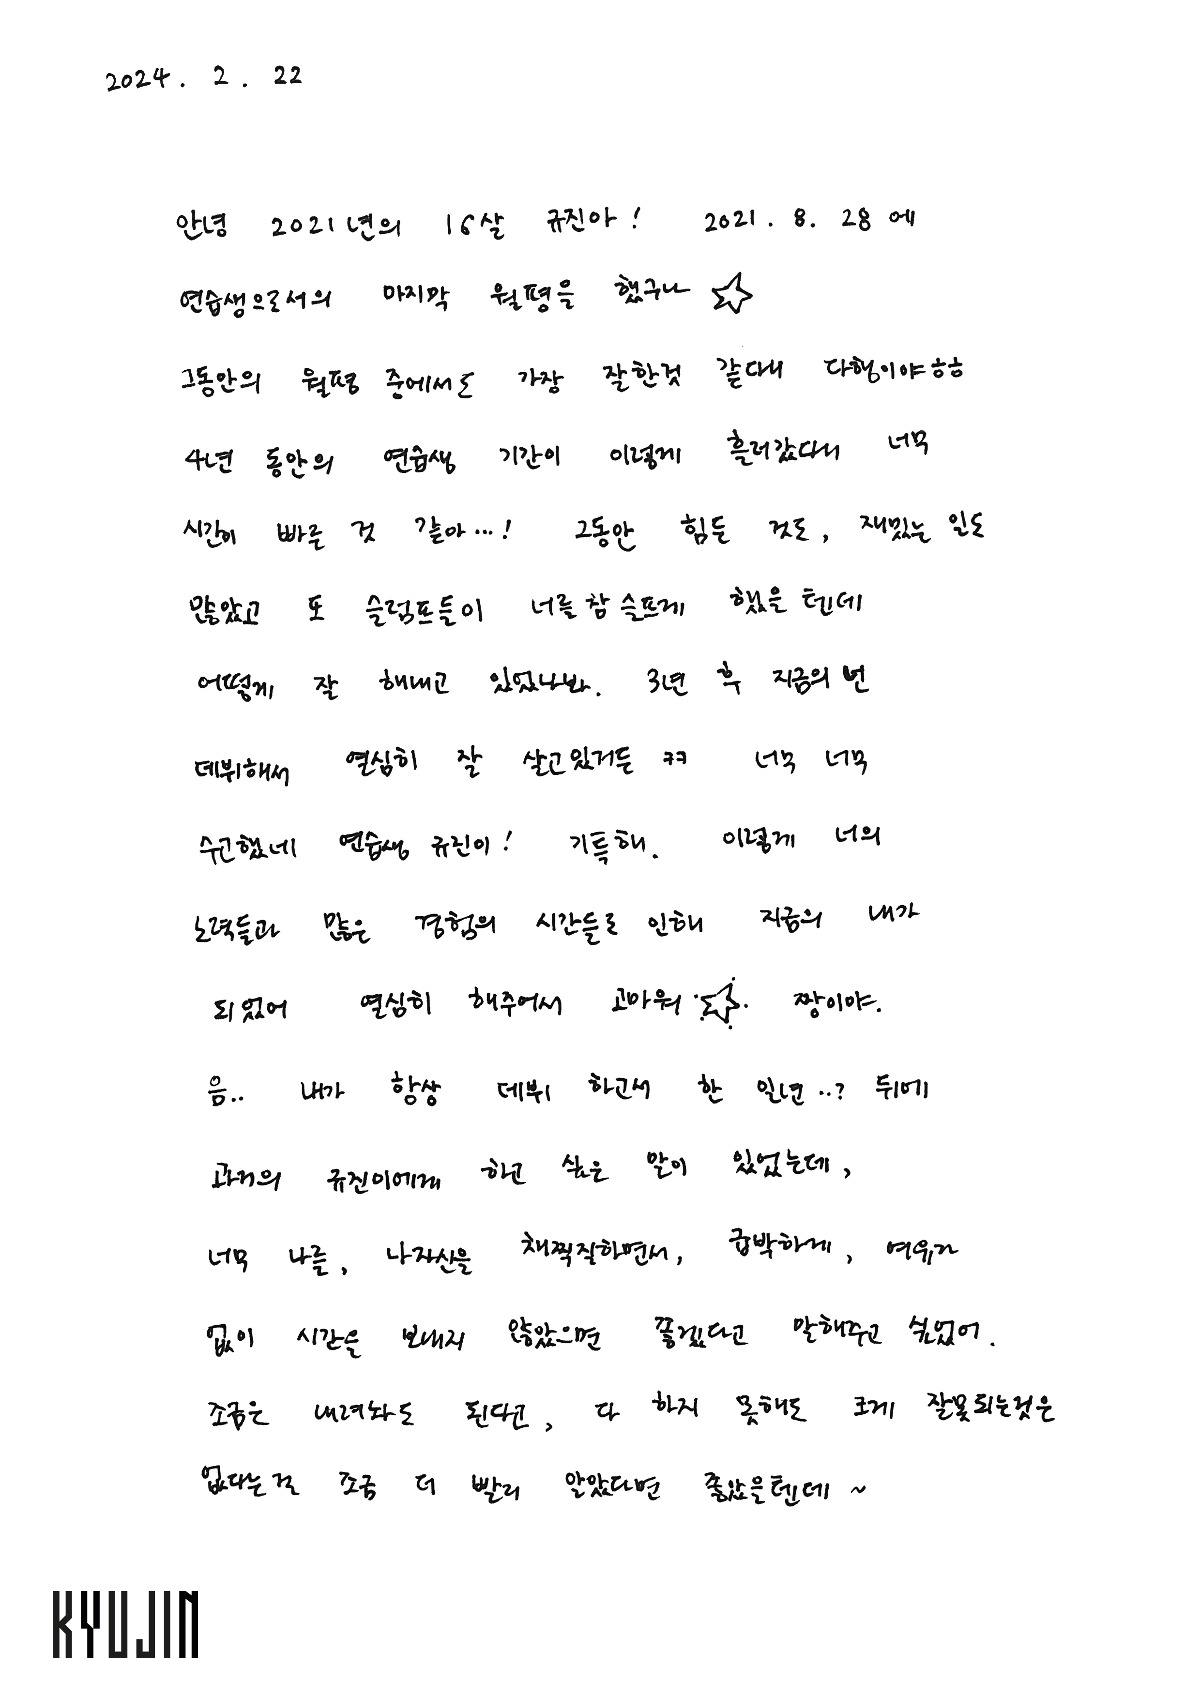 2024. 2. 22
안녕 2021년의 16살 규진아! 2021. 8. 28에
연습생으로서의 마지막 월평을 했구나 ☆
그동안의 월평 중에서도 가장 잘한것 같다니 다행이야ㅎㅎ
4년 동안의 연습생 기간이 이렇게 흘러갔다니 너무
시간이 빠른 것 같아...! 그동안 힘든 것도, 재밌는 일도
많았고 또 슬럼프들이 너를 참 슬프게 했을 텐데
어떻게 잘 해내고 있었나봐. 3년 후 지금의 넌
데뷔해서 열심히 잘 살고있거든 ㅋㅋ 너무 너무
수고했네 연습생 규진이! 기특해. 이렇게 너의
노력들과 많은 경험의 시간들로 인해 지금의 내가
되었어 열심히 해주어서 고마워 ☆ 짱이야.
음.. 내가 항상 데뷔 하고서 한 일년..? 뒤에
과거의 규진이에게 하고 싶은 말이 있었는데,
너무 나를, 나자신을 채찍질하면서, 급박하게, 여유가
없이 시간을 보내지 않았으면 좋겠다고 말해주고 싶었어.
조금은 내려놔도 된다고, 다 하지 못해도 크게 잘못되는것은
없다는걸 조금 더 빨리 알았다면 좋았을텐데 ~
KYUJIN